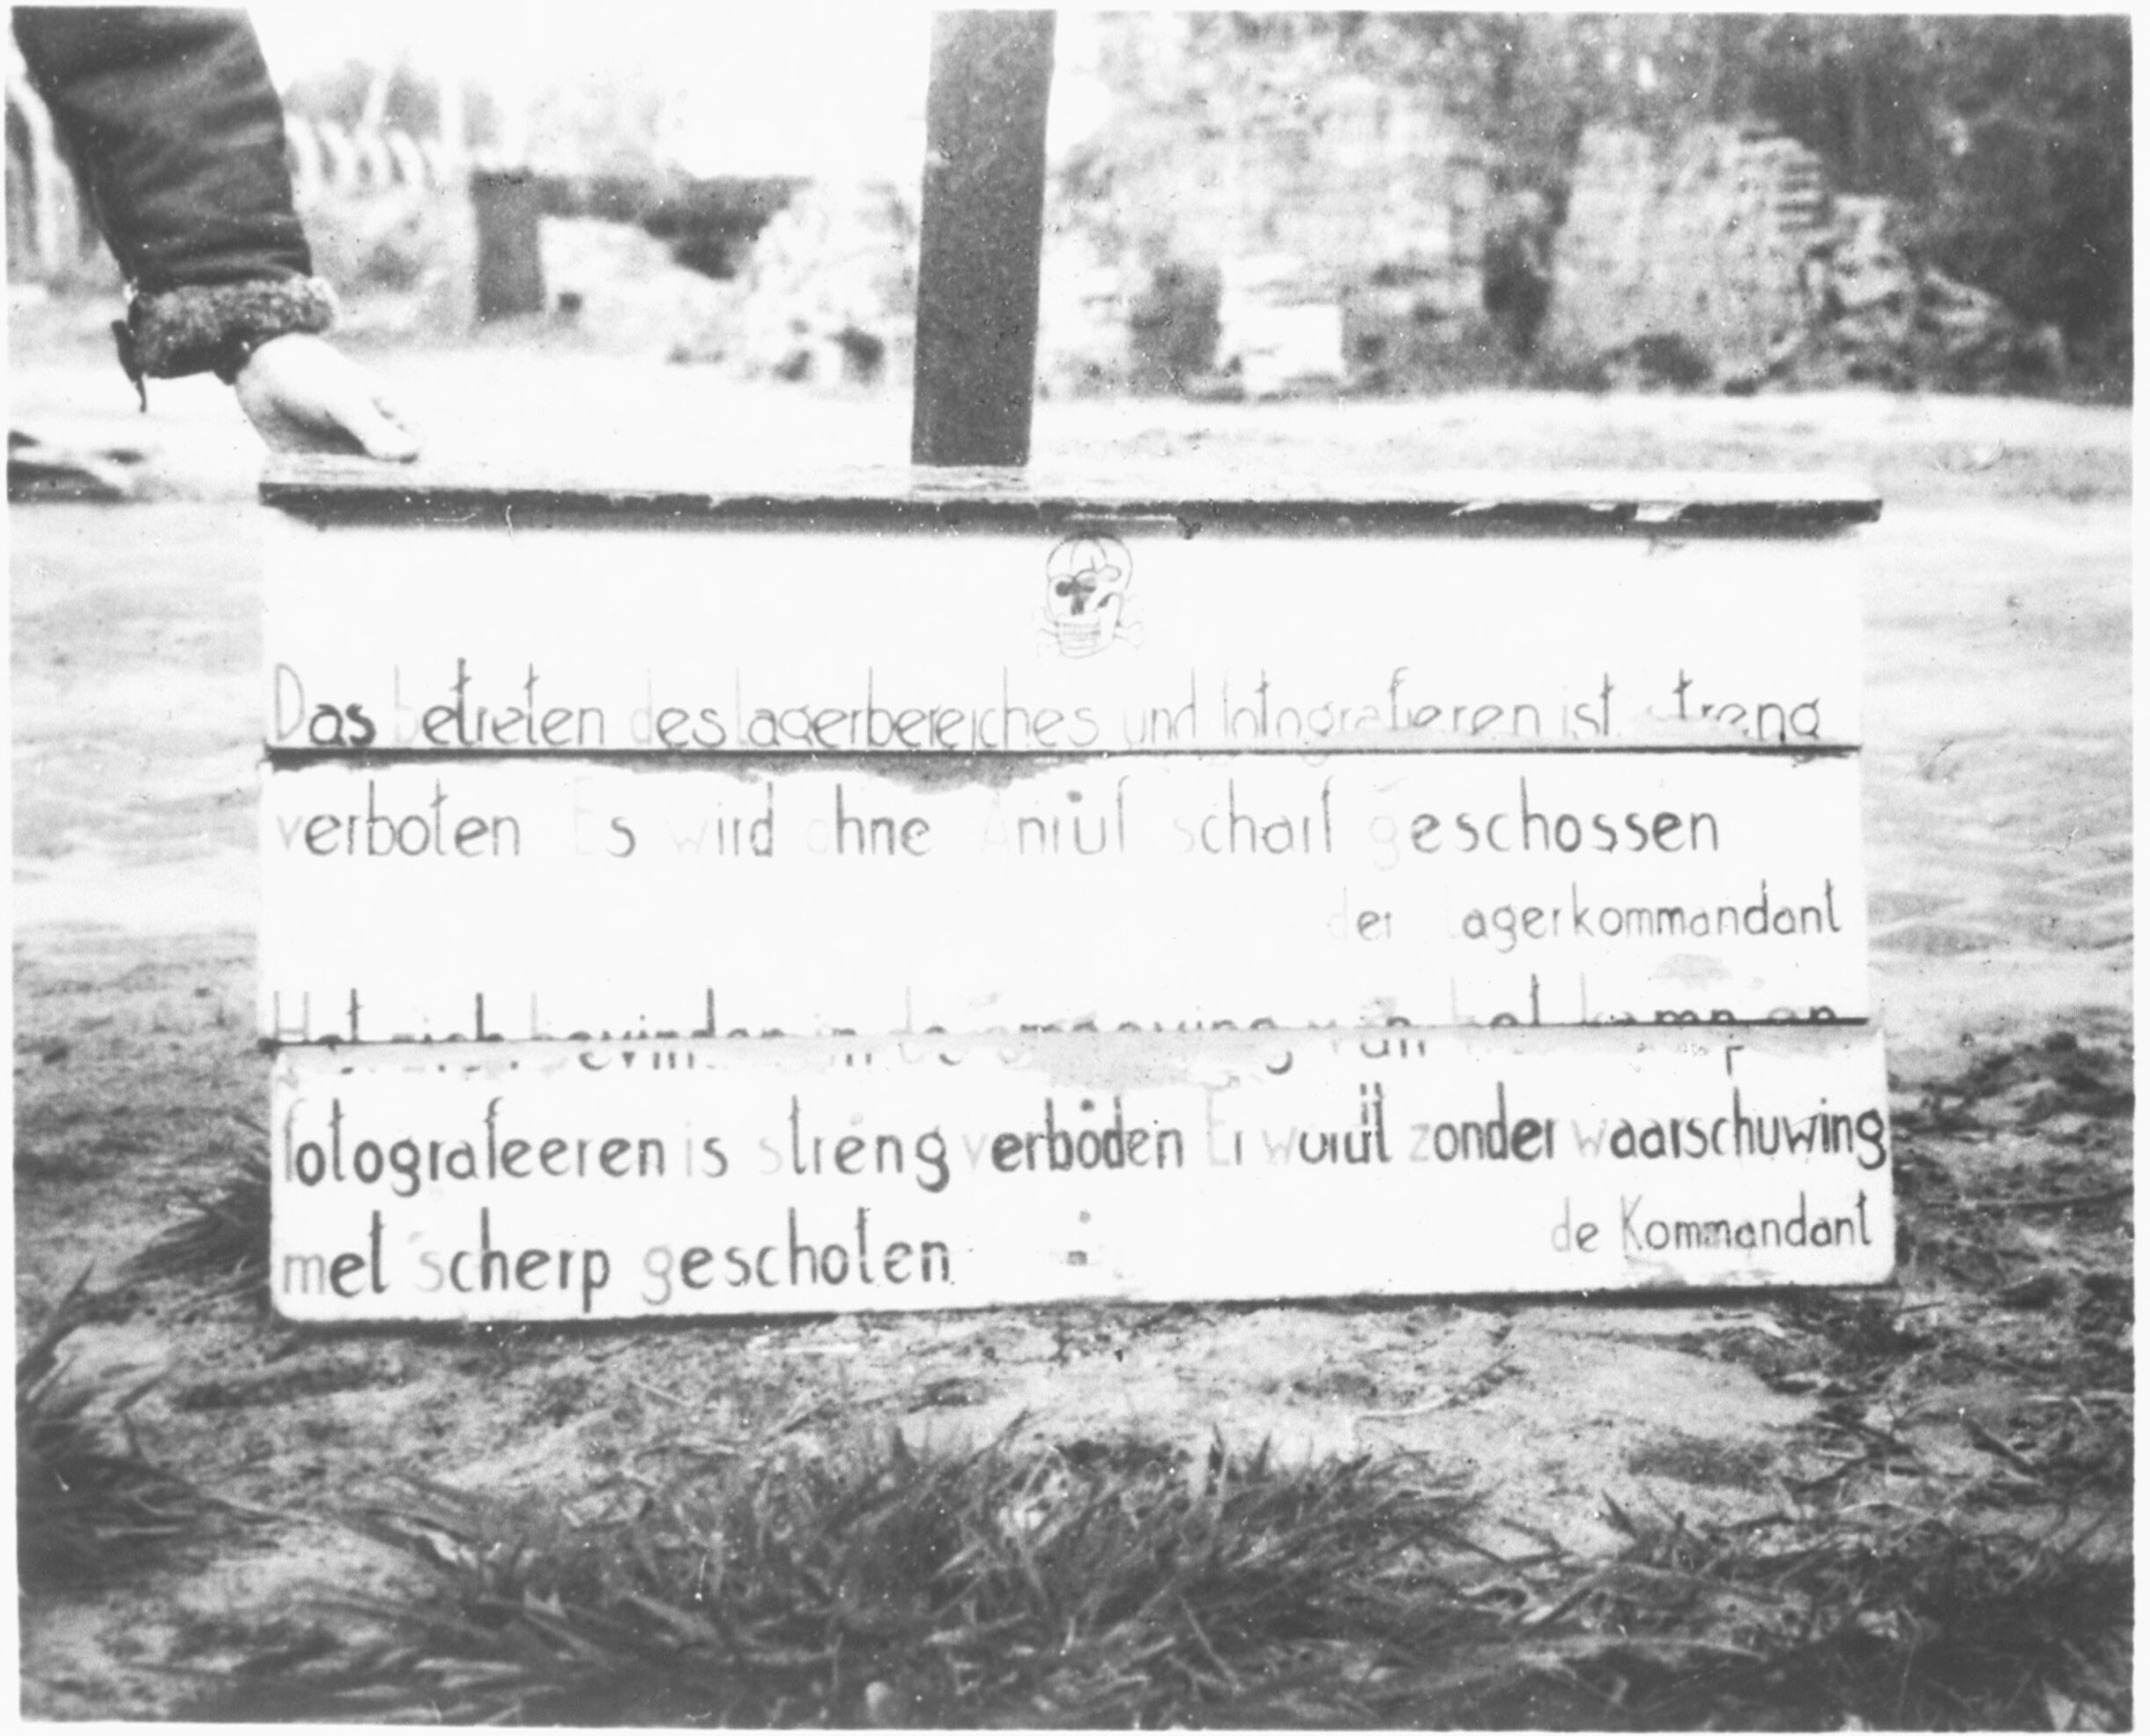 Das betreten des lagerbereiches und fotografieren ist streng
verboten Es wird ohne Anruf scharf geschossen
der Lagerkommandant
Het zich bevinden in de omgeving van het kamp en
fotografeeren is streng verboden Er wordt zonder waarschuwing
met scherp geschoten
de Kommandant